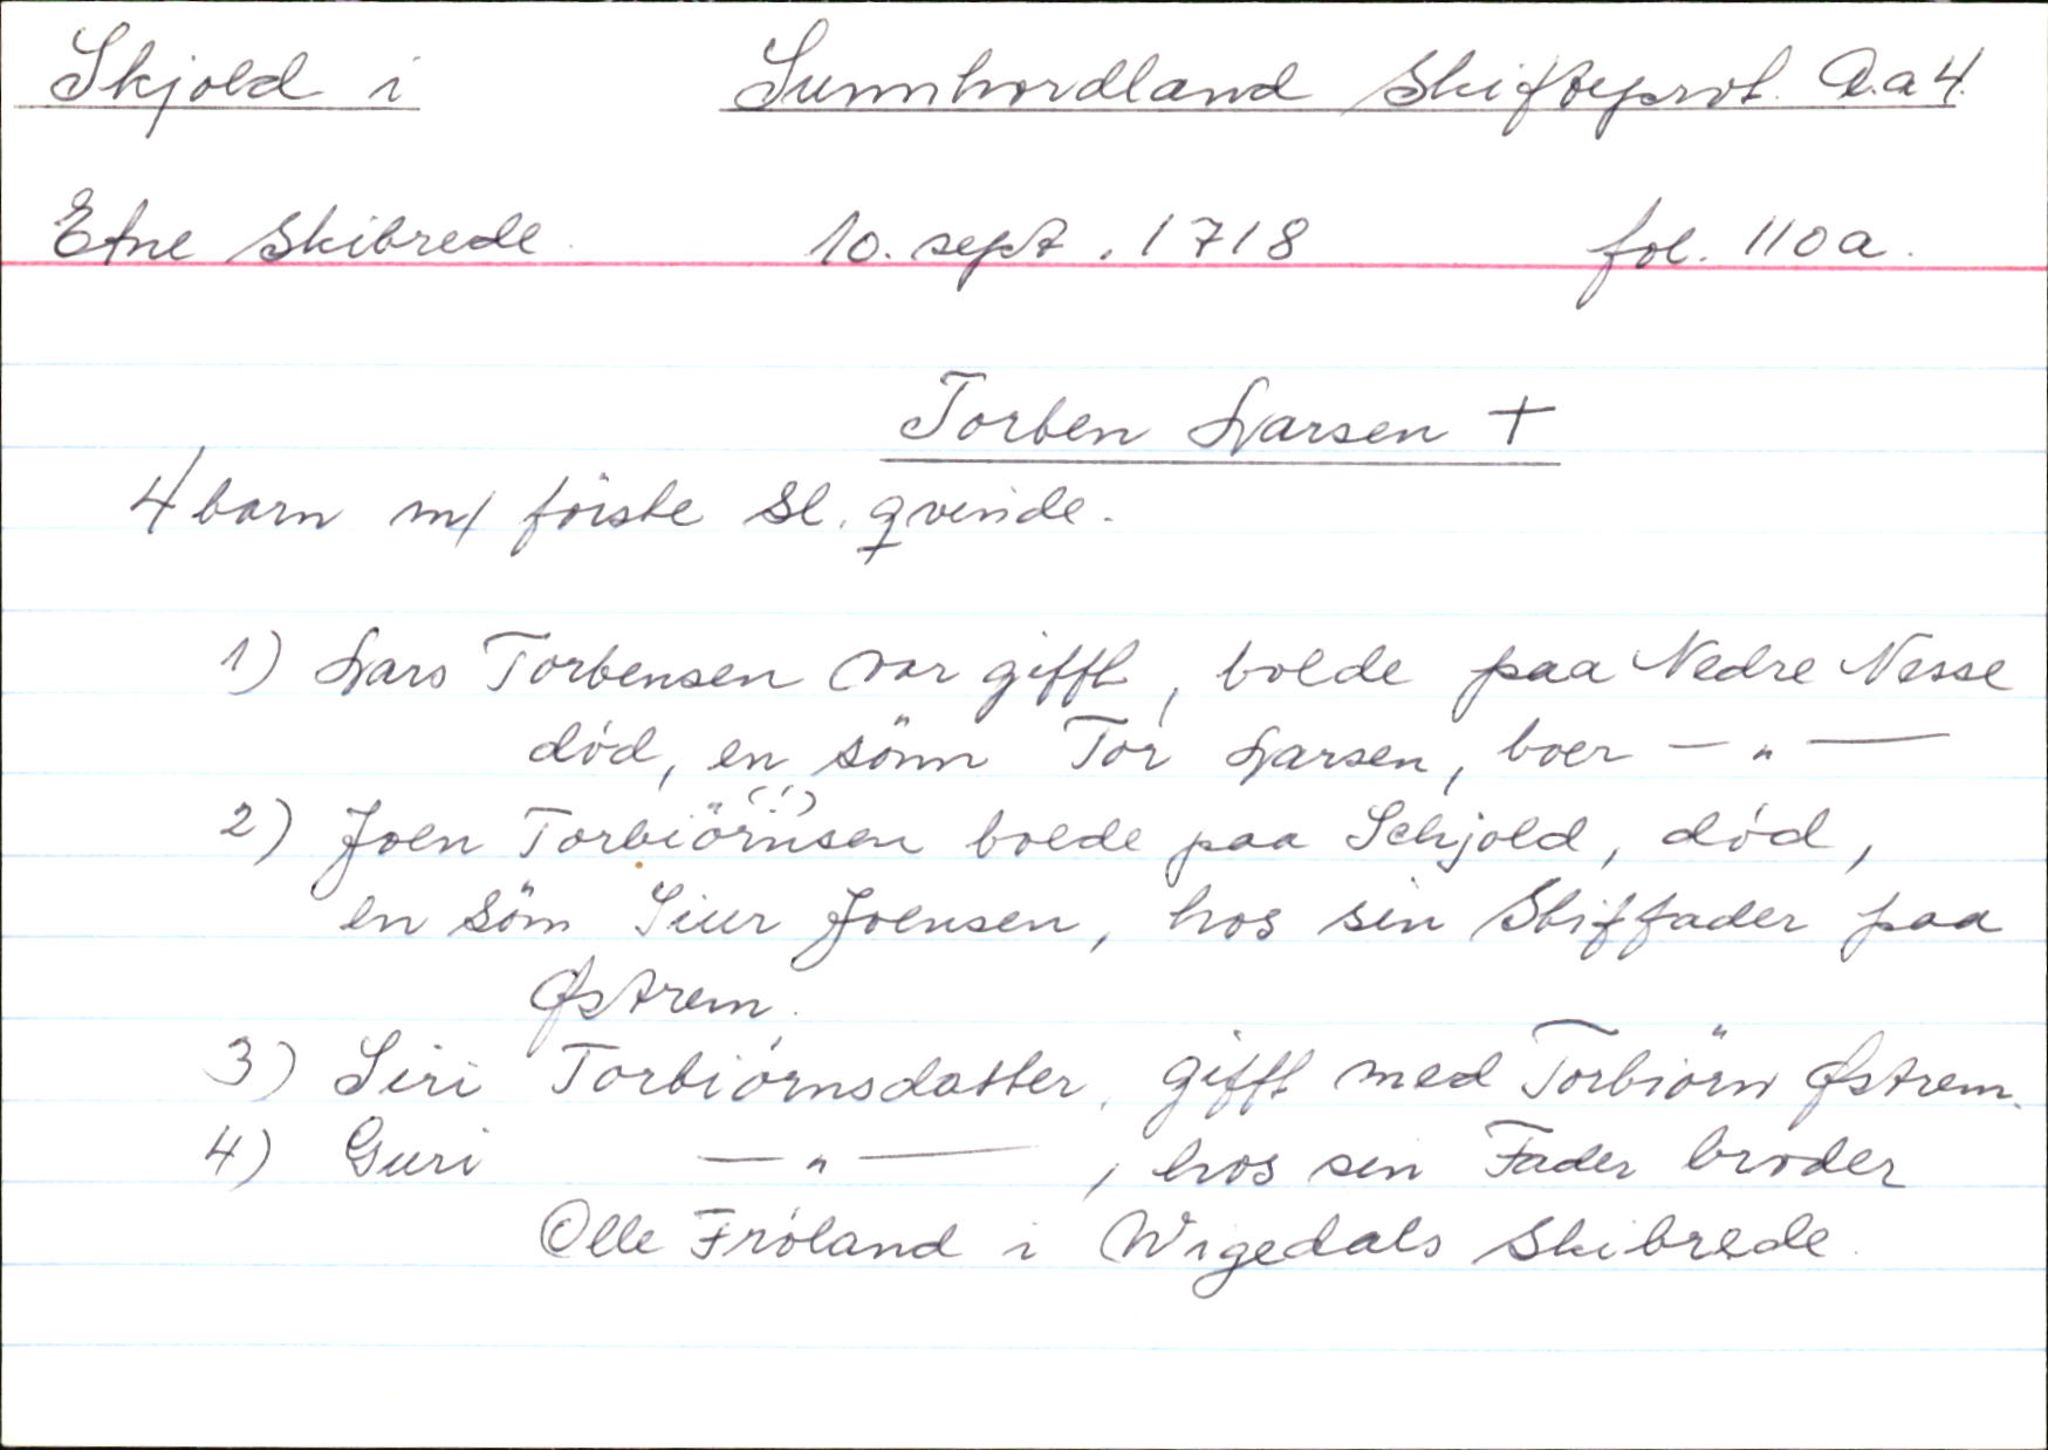 Skjold i Sunnhordland Skifteprot. A.a 4.
Etne Skibrede 10. sept. 1718 fol. 110a.
Torben Larsen †
4 barn m/ förste Sl. qvinde.
1) Lars Torbensen var gifft, boede paa Nedre Nesse
död, en sönn Tor Larsen, boer — „ —
2) Joen Torbiörnsen (!) boede paa Schjold, död,
en sönn Siur Joensen, hos sin Stiffader paa
Østrem.
3) Siri Torbiörnsdatter, gifft med Torbiörn Østrem.
4) Guri — „ —, hos sin Fader broder
Olle Fröland i Wigedals Skibrede.